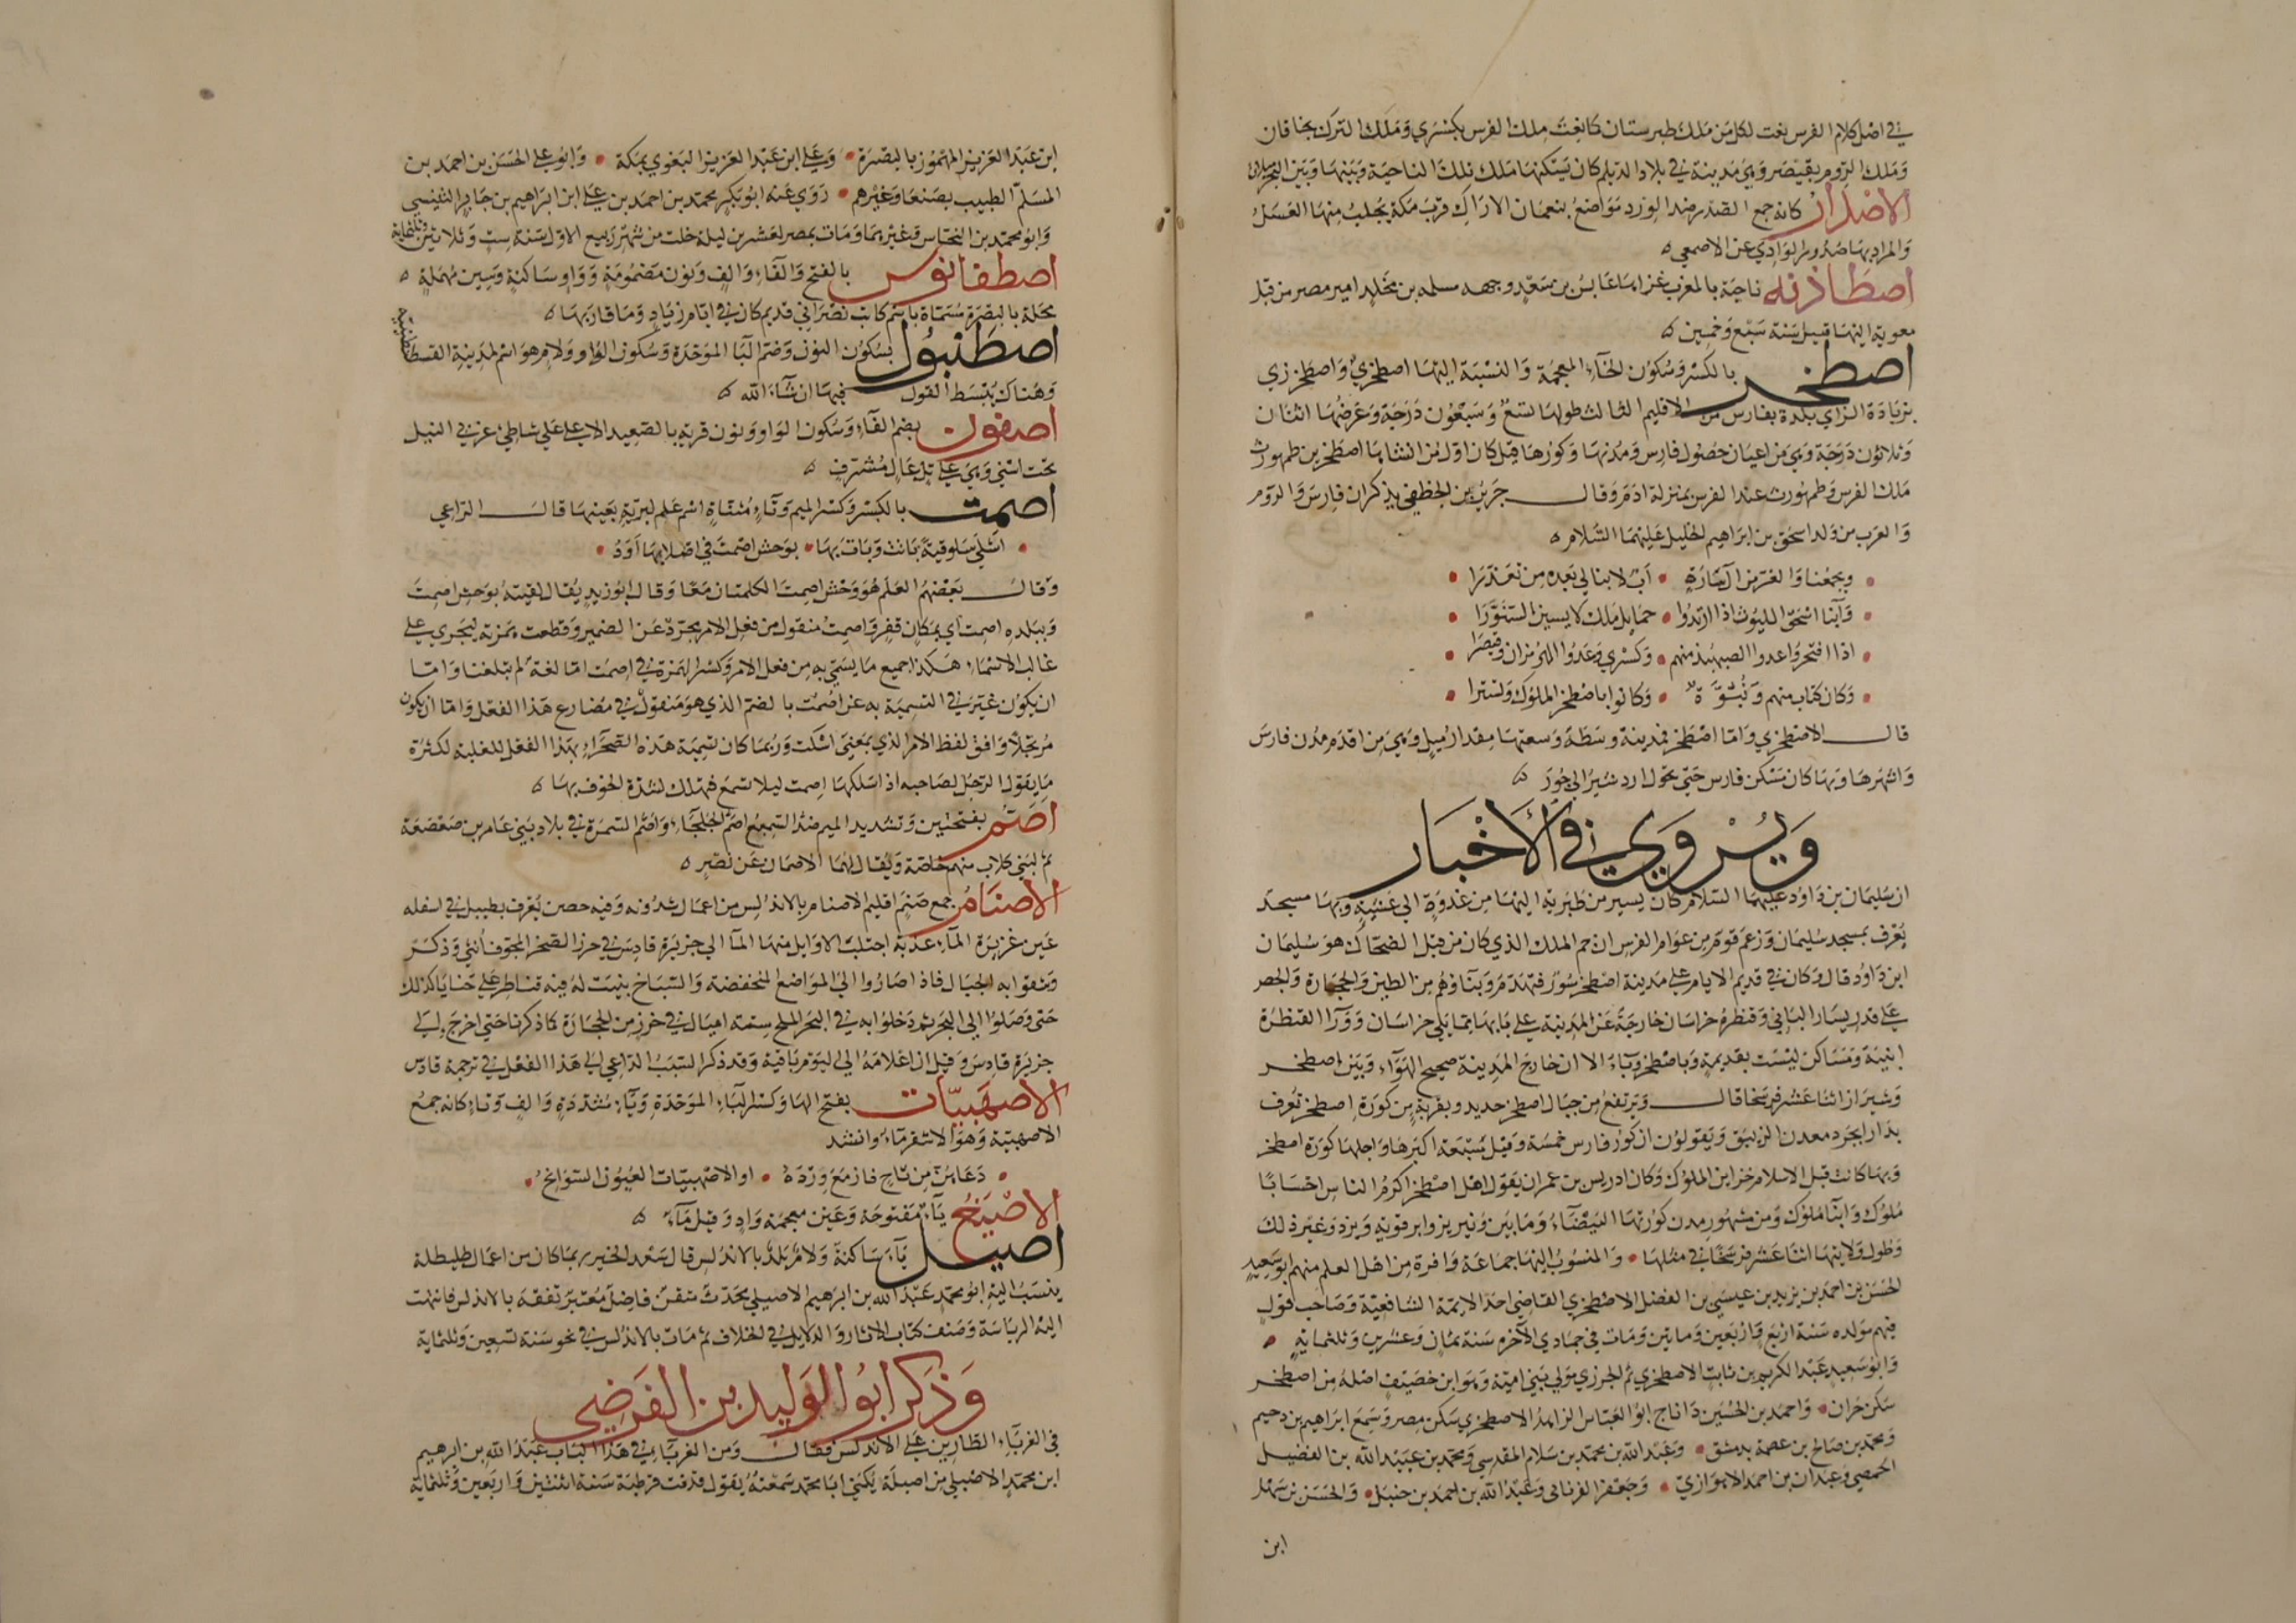 في اصل كلام الفرس نعت لكل من ملك طبرستان كما نعت ملك الفرس بكسرى وملك الترك بخاقان
وملك الروم بقيصر وهي مدينة في بلاد الديلم كان يسكنها ملك تلك الناحية وبينها وبين البحر ميلان
الاصدار كانه جمع الصدر ضد الورد مواضع بنعمان الاراك قرب مكة يجلب منها العسل
والمراد بها صدور الوادي عن الاصمعي ه
اصطاذنه ناحية بالمغرب غزاها عابس بن سعد وجهه مسلمه بن مخلد امير مصر من قبل
معوية اليها قبيل سنة سبع وخمسين ه
اصطخر بالكسر وسكون الخاء المعجمة والنسبة اليها اصطخري واصطخرزي
بزيادة الزاي بلدة بفارس من الاقليم الثالث طولها تسع وسبعون درجة وعرضها اثنان
وثلاثون درجة وهي من اعيان حصون فارس ومدنها وكورها قيل كان اول من انشاها اصطخر بن طهمورث
ملك الفرس وطهمورث عند الفرس بمنزلة ادم وقال جرير بن الخطفى يذكر ان فارس والروم
والعرب من ولد اسحق بن ابراهيم الخليل عليهما السلام ه
ويجمعنا والغر من آل سارة • اب لا نبالي بعده من تعذرا •
وابنا اسحق الليوث اذا ارتدوا • حمايل ملك لابسين السنورا •
اذا افتخروا عدوا الصبهبذ منهم • وكسرى وعدوا الهرمزان وقيصرا •
وكان كتاب منهم ونبوة • وكانوا باصطخر الملوك وتسترا •
قال الاصطخري واما اصطخر فمدينة وسطة وسعتها مقدار ميل وهي من اقدم مدن فارس
واشهرها وبها كان مسكن فارس حتى تحول اردشير الى جور ه
ويروى في الأخبار
ان سليمان بن داود عليهما السلام كان يسير من طبرية اليها من غدوة الى عشية وبها مسجد
يعرف بمسجد سليمان وزعم قوم من عوام الفرس ان جم الملك الذي كان من قبل الضحاك هو سليمان
ابن داود قال وكان في قديم الايام على مدينة اصطخر سور فتهدم وبناؤهم من الطين والحجارة والجص
على قدر يسار الباني وقنطرة خراسان خارجة عن المدينة على بابها مما يلي خراسان وورآ القنطرة
ابنية ومساكن ليست بقديمة وباصطخر وبآء الا ان خارج المدينة صحيح الهوآء وبين اصطخر
وشيراز اثنا عشر فرسخا قال ويرتفع من جبال اصطخر حديد وبقرية من كورة اصطخر تعرف
بدارابجرد معدن الزيبق ويقولون ان كور فارس خمسة وقيل سبعة اكبرها واجلها كورة اصطخر
وبها كانت قبل الاسلام خزاين الملوك وكان ادريس بن عمران يقول اهل اصطخر اكرم الناس احسابا
ملوك وابنا ملوك ومن مشهور مدن كورتها البيضاء ومايين ونيريز وابرقويه ويزد وغير ذلك
وطول ولايتها اثنا عشر فرسخا في مثلها • والمنسوب اليها جماعة وافرة من اهل العلم منهم ابو سعيد
الحسن بن احمد بن يزيد بن عيسى بن الفضل الاصطخري القاضي احد الايمة الشافعية وصاحب قول
فيهم مولده سنة اربع واربعين ومايتين ومات في جمادي الآخر سنة ثمان وعشرين وثلثماية •
وابو سعيد عبد الكريم بن ثابت الاصطخري ثم الجزري مولى بني امية وهو ابن خصيف اصله من اصطخر
سكن حران • واحمد بن الحسين بن داناج ابو العباس الزاهد الاصطخري سكن مصر وسمع ابراهيم بن دحيم
ومحمد بن صالح بن عصمة بدمشق • وعبد الله بن محمد بن سلام المقدسي ومحمد بن عبيد الله بن الفضيل
الحمصي وعبدان بن احمد الاهوازي • وجعفر الفريابي وعبد الله بن احمد بن حنبل • والحسن بن سهل
ابن
ابن عبد العزيز المجوز بالبصرة • وعلي ابن عبد العزيز البغوي بمكة • وابو علي الحسن بن احمد بن
المسلم الطبيب بصنعا وغيرهم • روى عنه ابو بكر محمد بن احمد بن علي ابن ابراهيم بن جابر التنيسي
وابو محمد بن النحاس وغيرهما ومات بمصر لعشرين ليلة خلت من شهر ربيع الاول سنة ست وثلاثين وثلثماية
اصطفانوس بالفتح والفاء والف ونون مضمومة وواو ساكنة وسين مهملة ه
محلة بالبصرة مسماة باسم كاتب نصراني قديم كان في ايام زياد وما قاربها ه
اصطنبول بسكون النون وضم البا الموحدة وسكون الواو ولام هو اسم لمدينة القسطنطينية
وهناك يبسط القول فيها ان شاء الله ه
اصفون بضم الفاء وسكون الواو ونون قرية بالصعيد الاعلى على شاطئ غربي النيل
تحت اسنى وهي على تل عال مشرف ه
اصمت بالكسر وكسر الميم وتاء مثناة اسم علم لبرية بعينها قال الراعي
• اشلى سلوقية باتت وبات بها • بوحش اصمت في اصلابها اود •
وقال بعضهم العلم هو وحش اصمت الكلمتان معا وقال ابو زيد يقال لقيته بوحش اصمت
وببلده اصمت اي بمكان قفر واصمت منقول من فعل الامر مجردة عن الضمير وقطعت همزته ليجري على
غالب الاسماء هكذا جميع ما يسمى به من فعل الامر وكسر الهمزة في اصمت اما لغة لم تبلغنا واما
ان يكون غير في التسمية به عن اصمت بالضم الذي هو منقول في مضارع هذا الفعل واما ان يكون
مرتجلا وافق لفظ الامر الذي بمعنى اسكت وربما كان تسمية هذه الصحراء بهذا الفعل للغلبة لكثرة
ما يقول الرجل لصاحبه اذا سلكها اصمت ليلا تسمع فتهلك لشدة الخوف بها ه
اصم بفتحتين وتشديد الميم ضد السميع اصم الجلحاء واصم السمرة في بلاد بني عامر بن صعصعة
ثم لبني كلاب منهم خاصة ويقال لهما الاصمان عن نصر ه
الاصنام جمع صنم اقليم الاصنام بالاندلس من اعمال شدونه وفيه حصن يعرف بطبيل في اسفله
عين غزيرة الماء عذبة اجتلب الاوايل منها المآ الى جزيرة قادس في خرز الصخر المجوف انثى وذكر
وشقوا به الجبال فاذا صاروا الى المواضع المنخفضة والسباخ بنيت له فيه قناطر على حنايا كذلك
حتى وصلوا الى البحر ثم دخلوا به في البحر الملح ستة اميال في خرز من الحجارة كما ذكرنا حتى اخرج الى
جزيرة قادس وقيل ان اعلامه الى اليوم باقية وقد ذكر السبب الداعي الى هذا الفعل في ترجمة قادس
الاصهبيات بفتح الها وكسر الباء الموحدة وياء مشددة والف وتاء كانه جمع
الاصهبية وهو الاشقر ماء وانشد
• دعاهن من ثاج فازمع ورده • او الاصهبيات العيون السوائح •
الاصيغ ياء مفتوحة وغين معجمة واد وقيل ماء ه
اصيل ياء ساكنة ولام بلد بالاندلس قال سعد الخير ربما كان من اعمال طليطلة
ينسب اليه ابو محمد عبد الله بن ابرهيم الاصيلي محدث متقن فاضل معتبر تفقه بالاندلس فانتهت
اليه الرياسة وصنف كتاب الاثار والدلايل في الخلاف ثم مات بالاندلس في نحو سنة تسعين وثلثماية
وذكر ابو الوليد بن الفرضي
في الغرباء الطارين على الاندلس فقال ومن الغرباء في هذا الباب عبد الله بن ابرهيم
ابن محمد الاصيلي من اصيلة يكنى ابا محمد سمعته يقول قدمت قرطبة سنة اثنتين واربعين وثلثماية